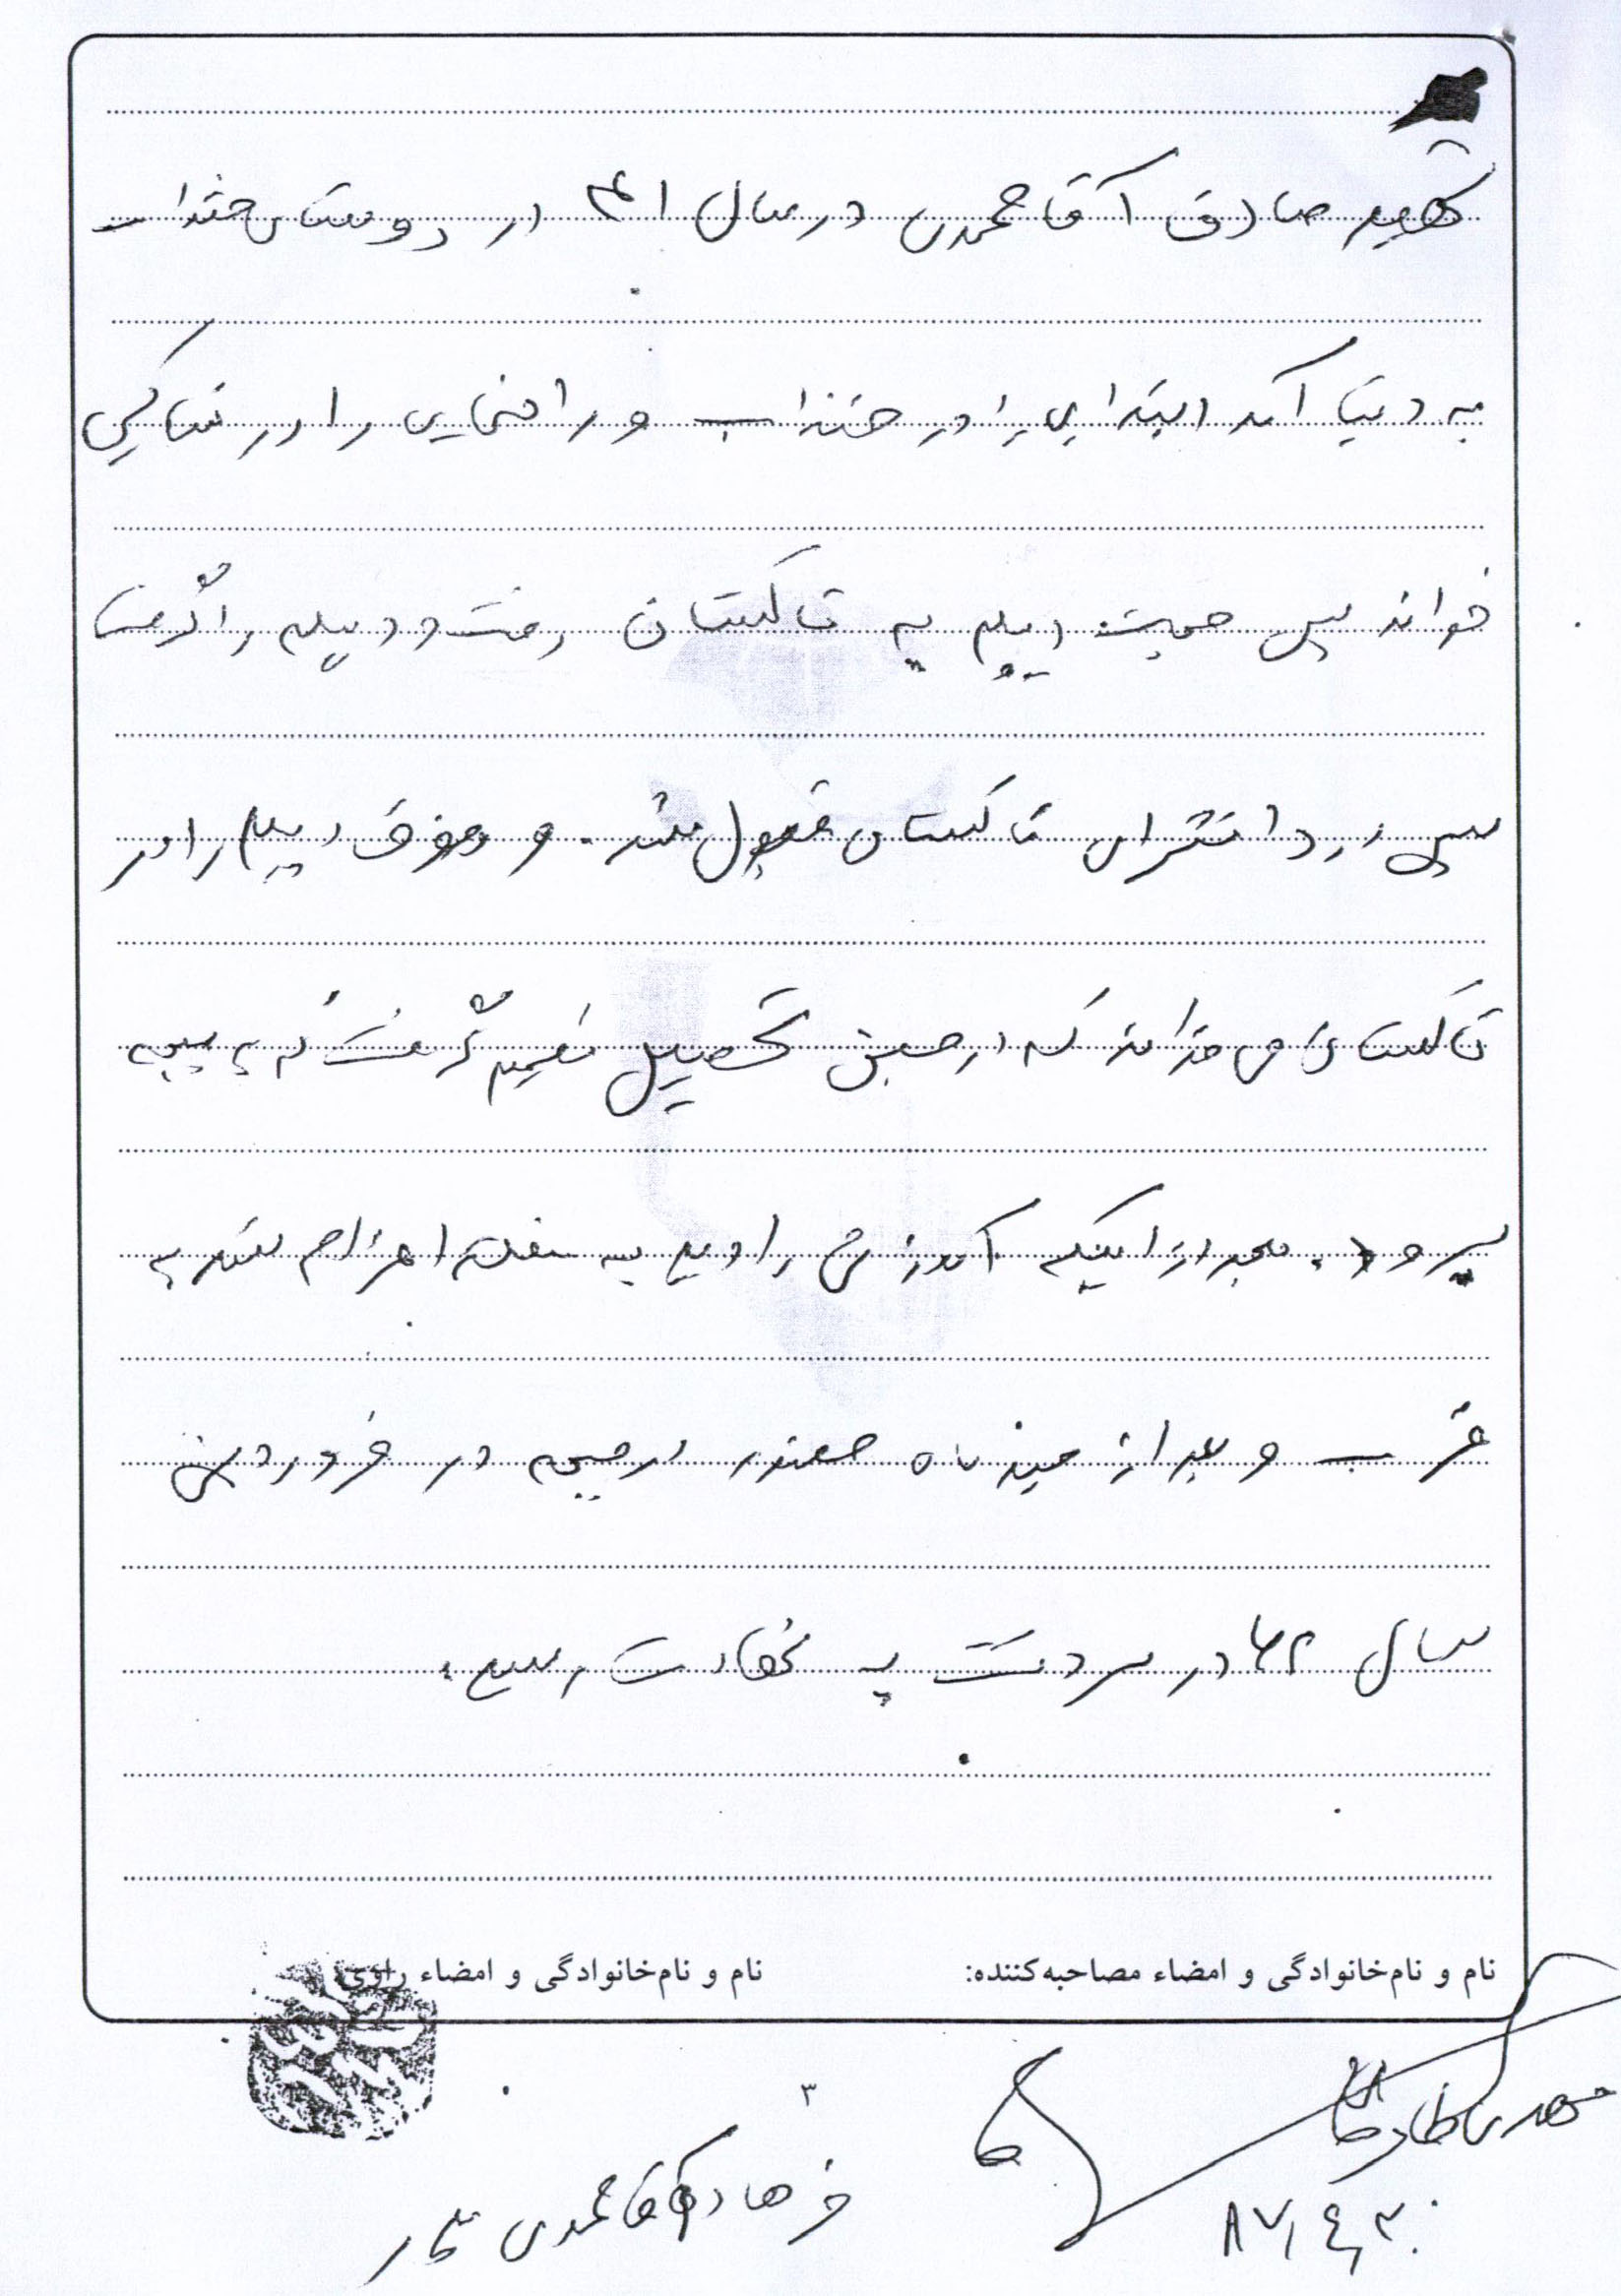 شهید صادق آقامحمدی در سال ۴۱ در روستای خنداب
به دنیا آمد ابتدایی را در خنداب و راهنمایی را در
خواند سپس جهت دیپلم به تاکستان رفت و دیپلم را گرفت
سپس در دانشسرای تاکستان قبول شد. و فوق دیپلم را در
تاکستان می خواند که در حین تحصیل تصمیم گرفت که به جبهه
برود. بعد از اینکه آموزشی را دید به منطقه اعزام شد به
غرب و بعد از چند ماه حضور در جبهه در فروردین
سال ۶۲ در سردشت به شهادت رسید.
نام و نام‌خانوادگی و امضاء مصاحبه‌کننده:
نام و نام‌خانوادگی و امضاء راوی:
۳
فرهاد آقامحمدی
۸۷/۴/۳۰